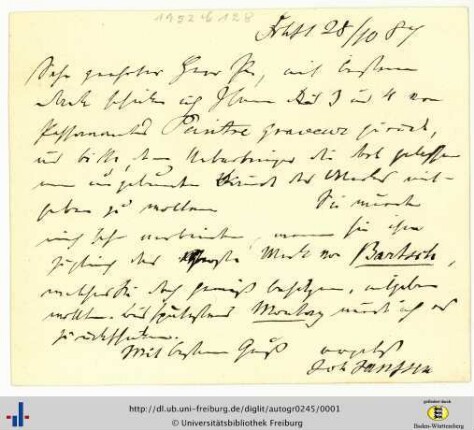 1952/6 128
28/10 87
Sehr geehrter Herr Dr, mit bestem
Danke schicke ich Ihnen Bd 3 und 4 von
Passavants Peintre graveur zurück,
und bitte, dem Ueberbringer die dort
des Werkes mit-
geben zu wollen Sie würden
mich sehr verbinden, wenn Sie ihm
zugleich das Werk von Bartsch,
welches Sie doch gewiß besitzen, mitgeben
wollten. Bis spätestens Montag würde ich es
zurückschicken.
Mit bestem Gruß
Joh Janssen
http://dl.ub.uni-freiburg.de/diglit/autogr0245/0001
© Universitätsbibliothek Freiburg
gefördert durch
Baden-Württemberg